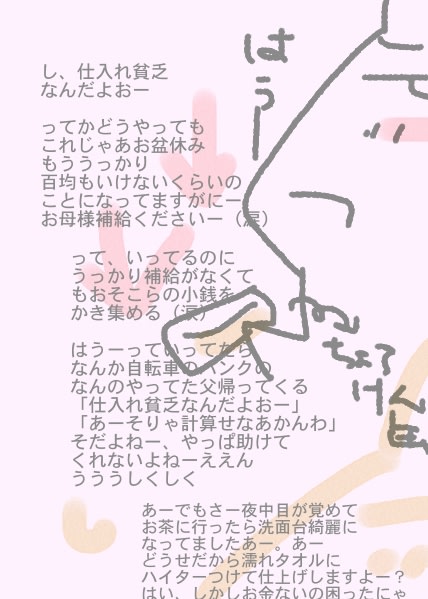 はぅー
し、仕入れ貧乏
なんだよおー
ってかどうやっても
これじゃあお盆休み
もううっかり
百均もいけないくらいの
ことになってますがにー
お母様補給くださいー（涙）
って、いってるのに
うっかり補給がなくて
もおそこらの小銭を
かき集める（涙）
はうーっていってたら
なんか自転車のパンクの
なんのやってた父帰ってくる
「仕入れ貧乏なんだよおー」
「あーそりゃ計算せなあかんわ」
そだよねー、やっぱ助けて
くれないよねーええん
うううしくしく
あーでもさー夜中目が覚めて
お茶に行ったら洗面台綺麗に
なってましたあー。あー
どうせだから濡れタオルに
ハイターつけて仕上げしますよー？
はい、しかしお金ないの困ったにゃ